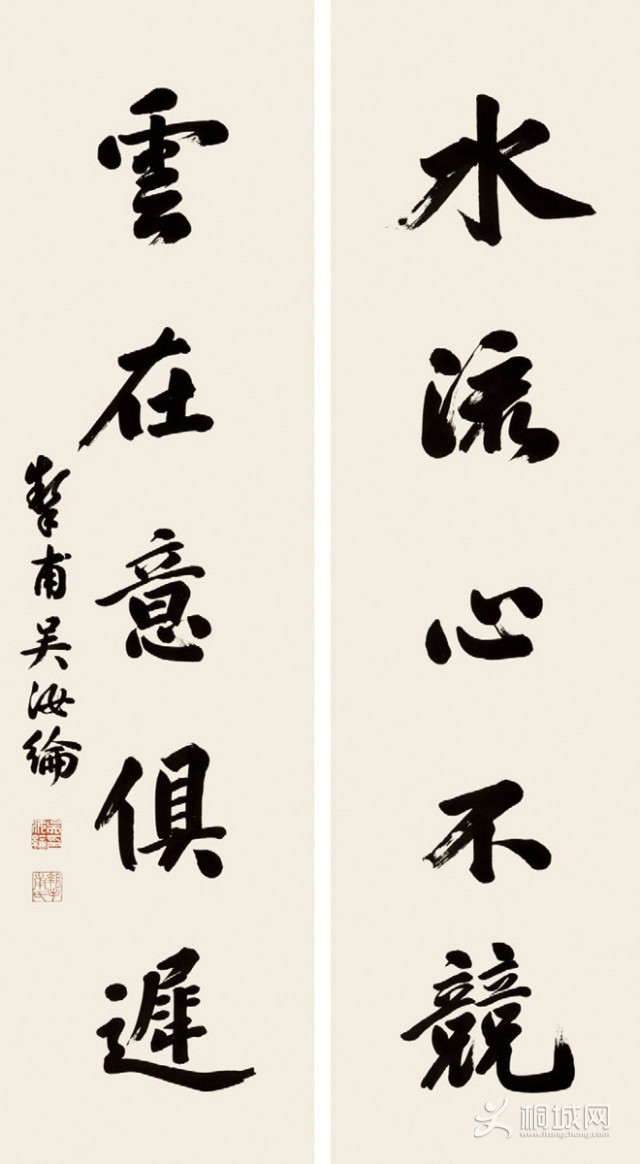 水流心不競
雲在意俱遲
摯甫吴汝綸
桐城网
www.itongcheng.com